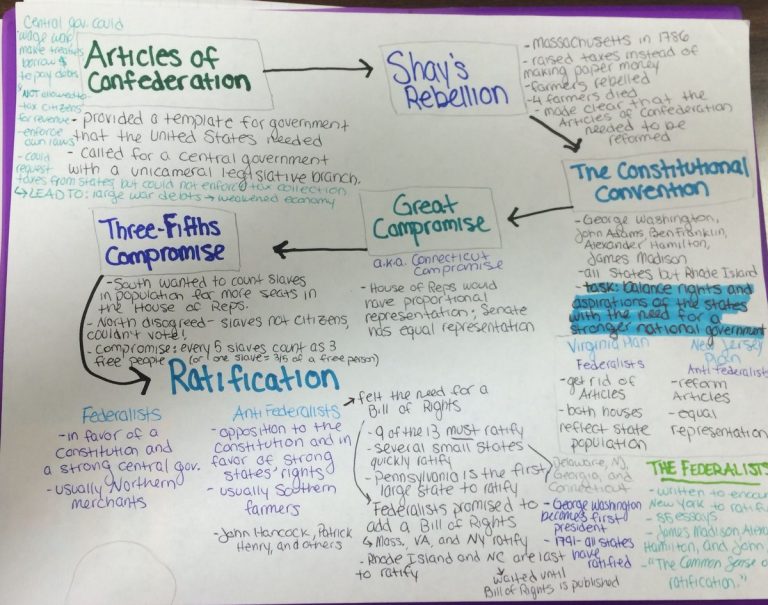 Central gov. could
wage war
make treaties
borrow $
to pay debts
NOT allowed to
tax citizens
for revenue
enforce
own laws
- could
request
taxes from states, but could not enforce tax collection.
↳ LEAD TO: large war debts → weakened economy
Articles of
Confederation
- provided a template for government
that the United States needed
- called for a central government
with a unicameral legislative branch.
Shay's
Rebellion
- Massachusetts in 1786
- raised taxes instead of
making paper money
- farmers rebelled
- 4 farmers died
- made clear that the
Articles of Confederation
needed to be
reformed
The Constitutional
Convention
- George Washington,
John Adams, Ben Franklin,
Alexander Hamilton,
James Madison
- all States but Rhode Island
- task: balance rights and
aspirations of the states
with the need for a
stronger national government
Virginia Plan
Federalists
- get rid of
Articles
- both houses
reflect state
population
New Jersey
Plan
Anti federalists
- reform
Articles
- equal
representation
Great
Compromise
a.k.a. Connecticut
Compromise
- House of Reps would
have proportional
representation; Senate
has equal representation
Three-Fifths
Compromise
- South wanted to count slaves
in population for more seats in
the House of Reps.
- North disagreed - slaves not citizens,
couldn't vote!
- Compromise: every 5 slaves count as 3
free people (or one slave = 3/5 of a free person)
Ratification
Federalists
- in favor of a
Constitution and
a strong central gov.
- usually Northern
merchants
Anti Federalists
- opposition to the
Constitution and in
favor of strong
states' rights
- usually Southern
farmers
- John Hancock, Patrick
Henry, and others
felt the need for a
Bill of Rights
- 9 of the 13 must ratify
- several small states
quickly ratify
- Pennsylvania is the first
large state to ratify
Federalists promised to
add a Bill of Rights
↳ Mass, VA, and NY ratify
- Rhode Island and NC are last
to ratify
waited until
Bill of Rights is published
Delaware, NJ,
Georgia, and
Connecticut
- George Washington
becomes first
president
- 1791 - all states
have
ratified
THE FEDERALIST
- written to encour
New York to ratif
- 85 essays
- James Madison, Alexa
Hamilton, and John
- "The Common Sense o
ratification."